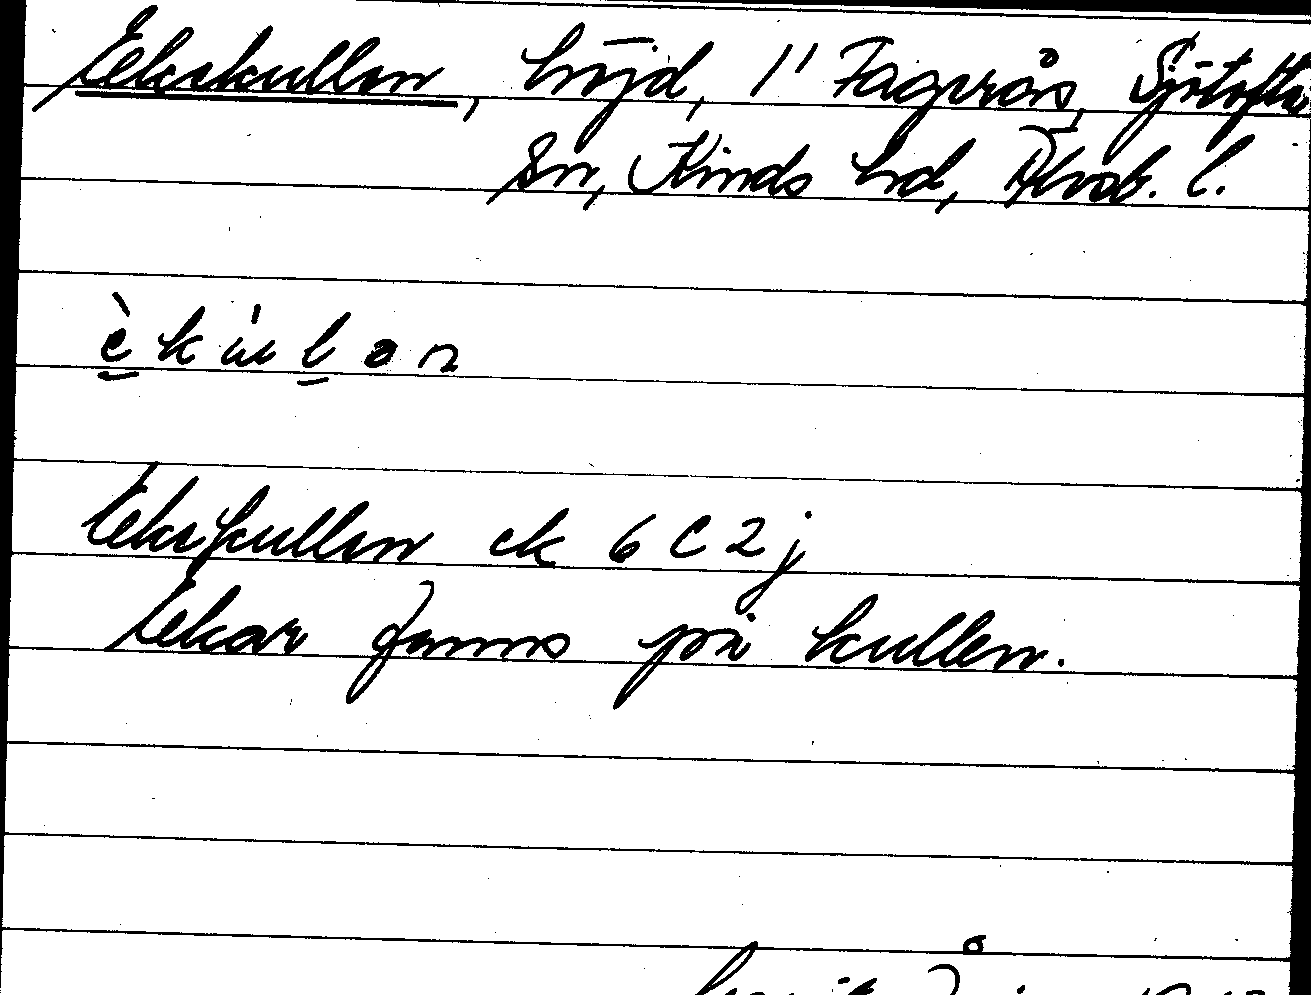 Ekekullen, höjd, 1' Fagerås, Sjötofta
Sn, Kinds hd, Älvsb. l.
èkúlən
Ekekullen ek 6 C 2 j
Ekar finns på kullen.